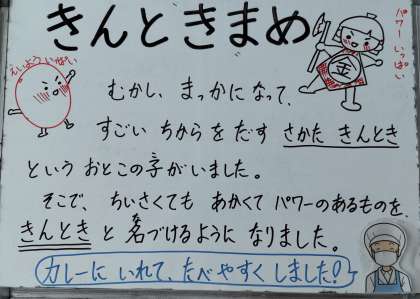 きんときまめ
えいよういっぱい
パワーいっぱい
金
むかし、まっかになって、
すごい ちからを だす さかた きんとき
という おとこの子がいました。
そこで、ちいさくても あかくて パワーのあるものを、
きんとき と 名づけるように なりました。
カレーに いれて、たべやすく しました!